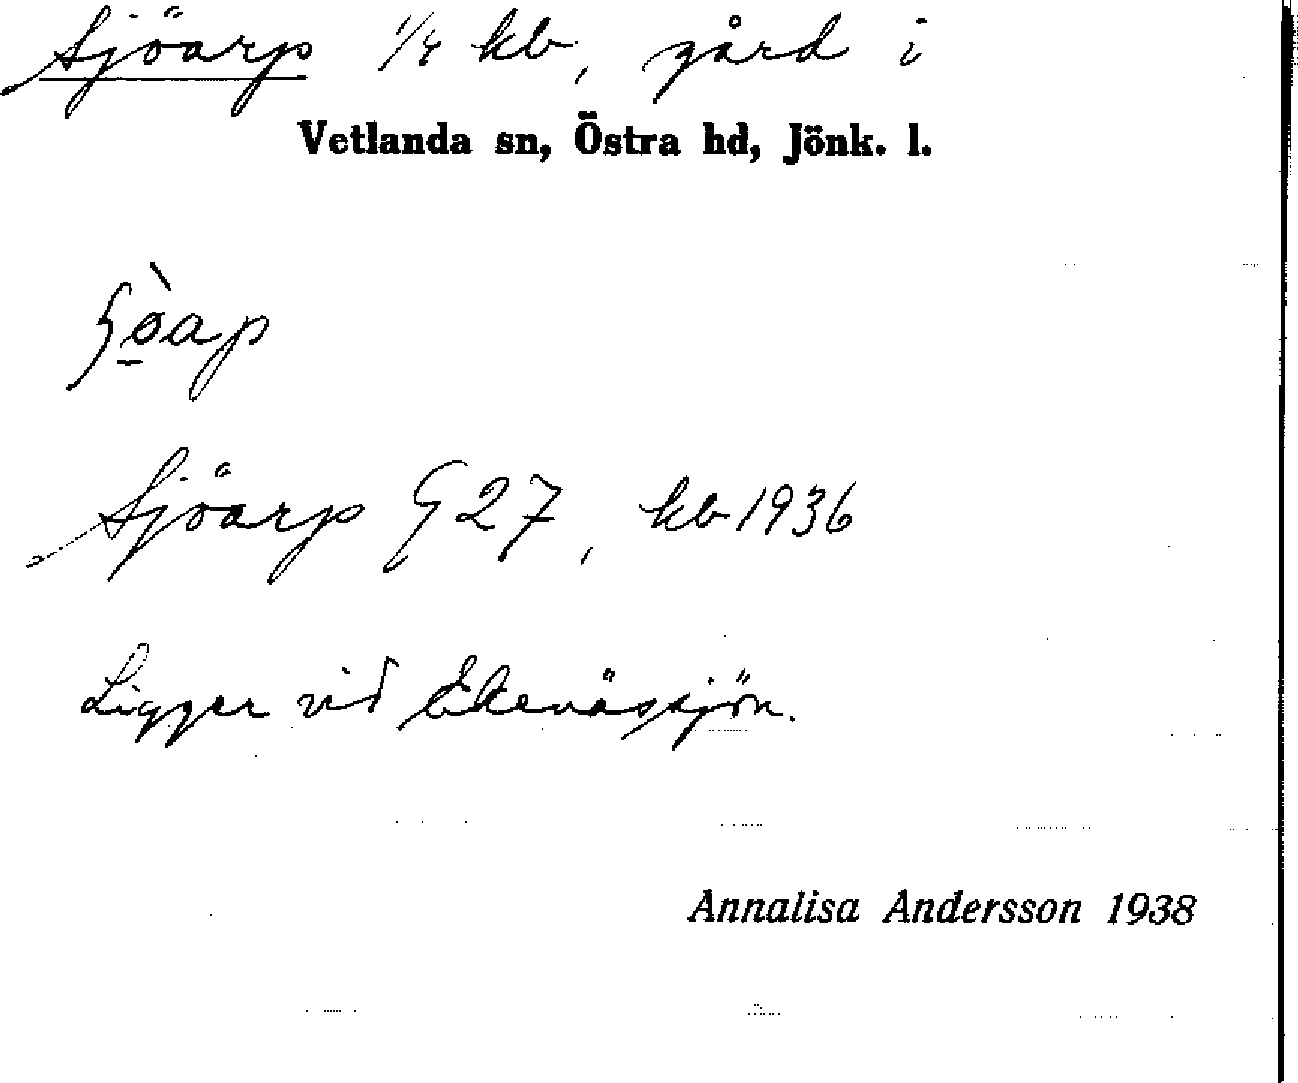 Sjöarp 1/4 kb, gård i
Vetlanda sn, Östra hd, Jönk. l.
ʃø̠̀ap
Sjöarp G 27, kb 1936
Ligger vid Ekenässjön.
Annalisa Andersson 1938